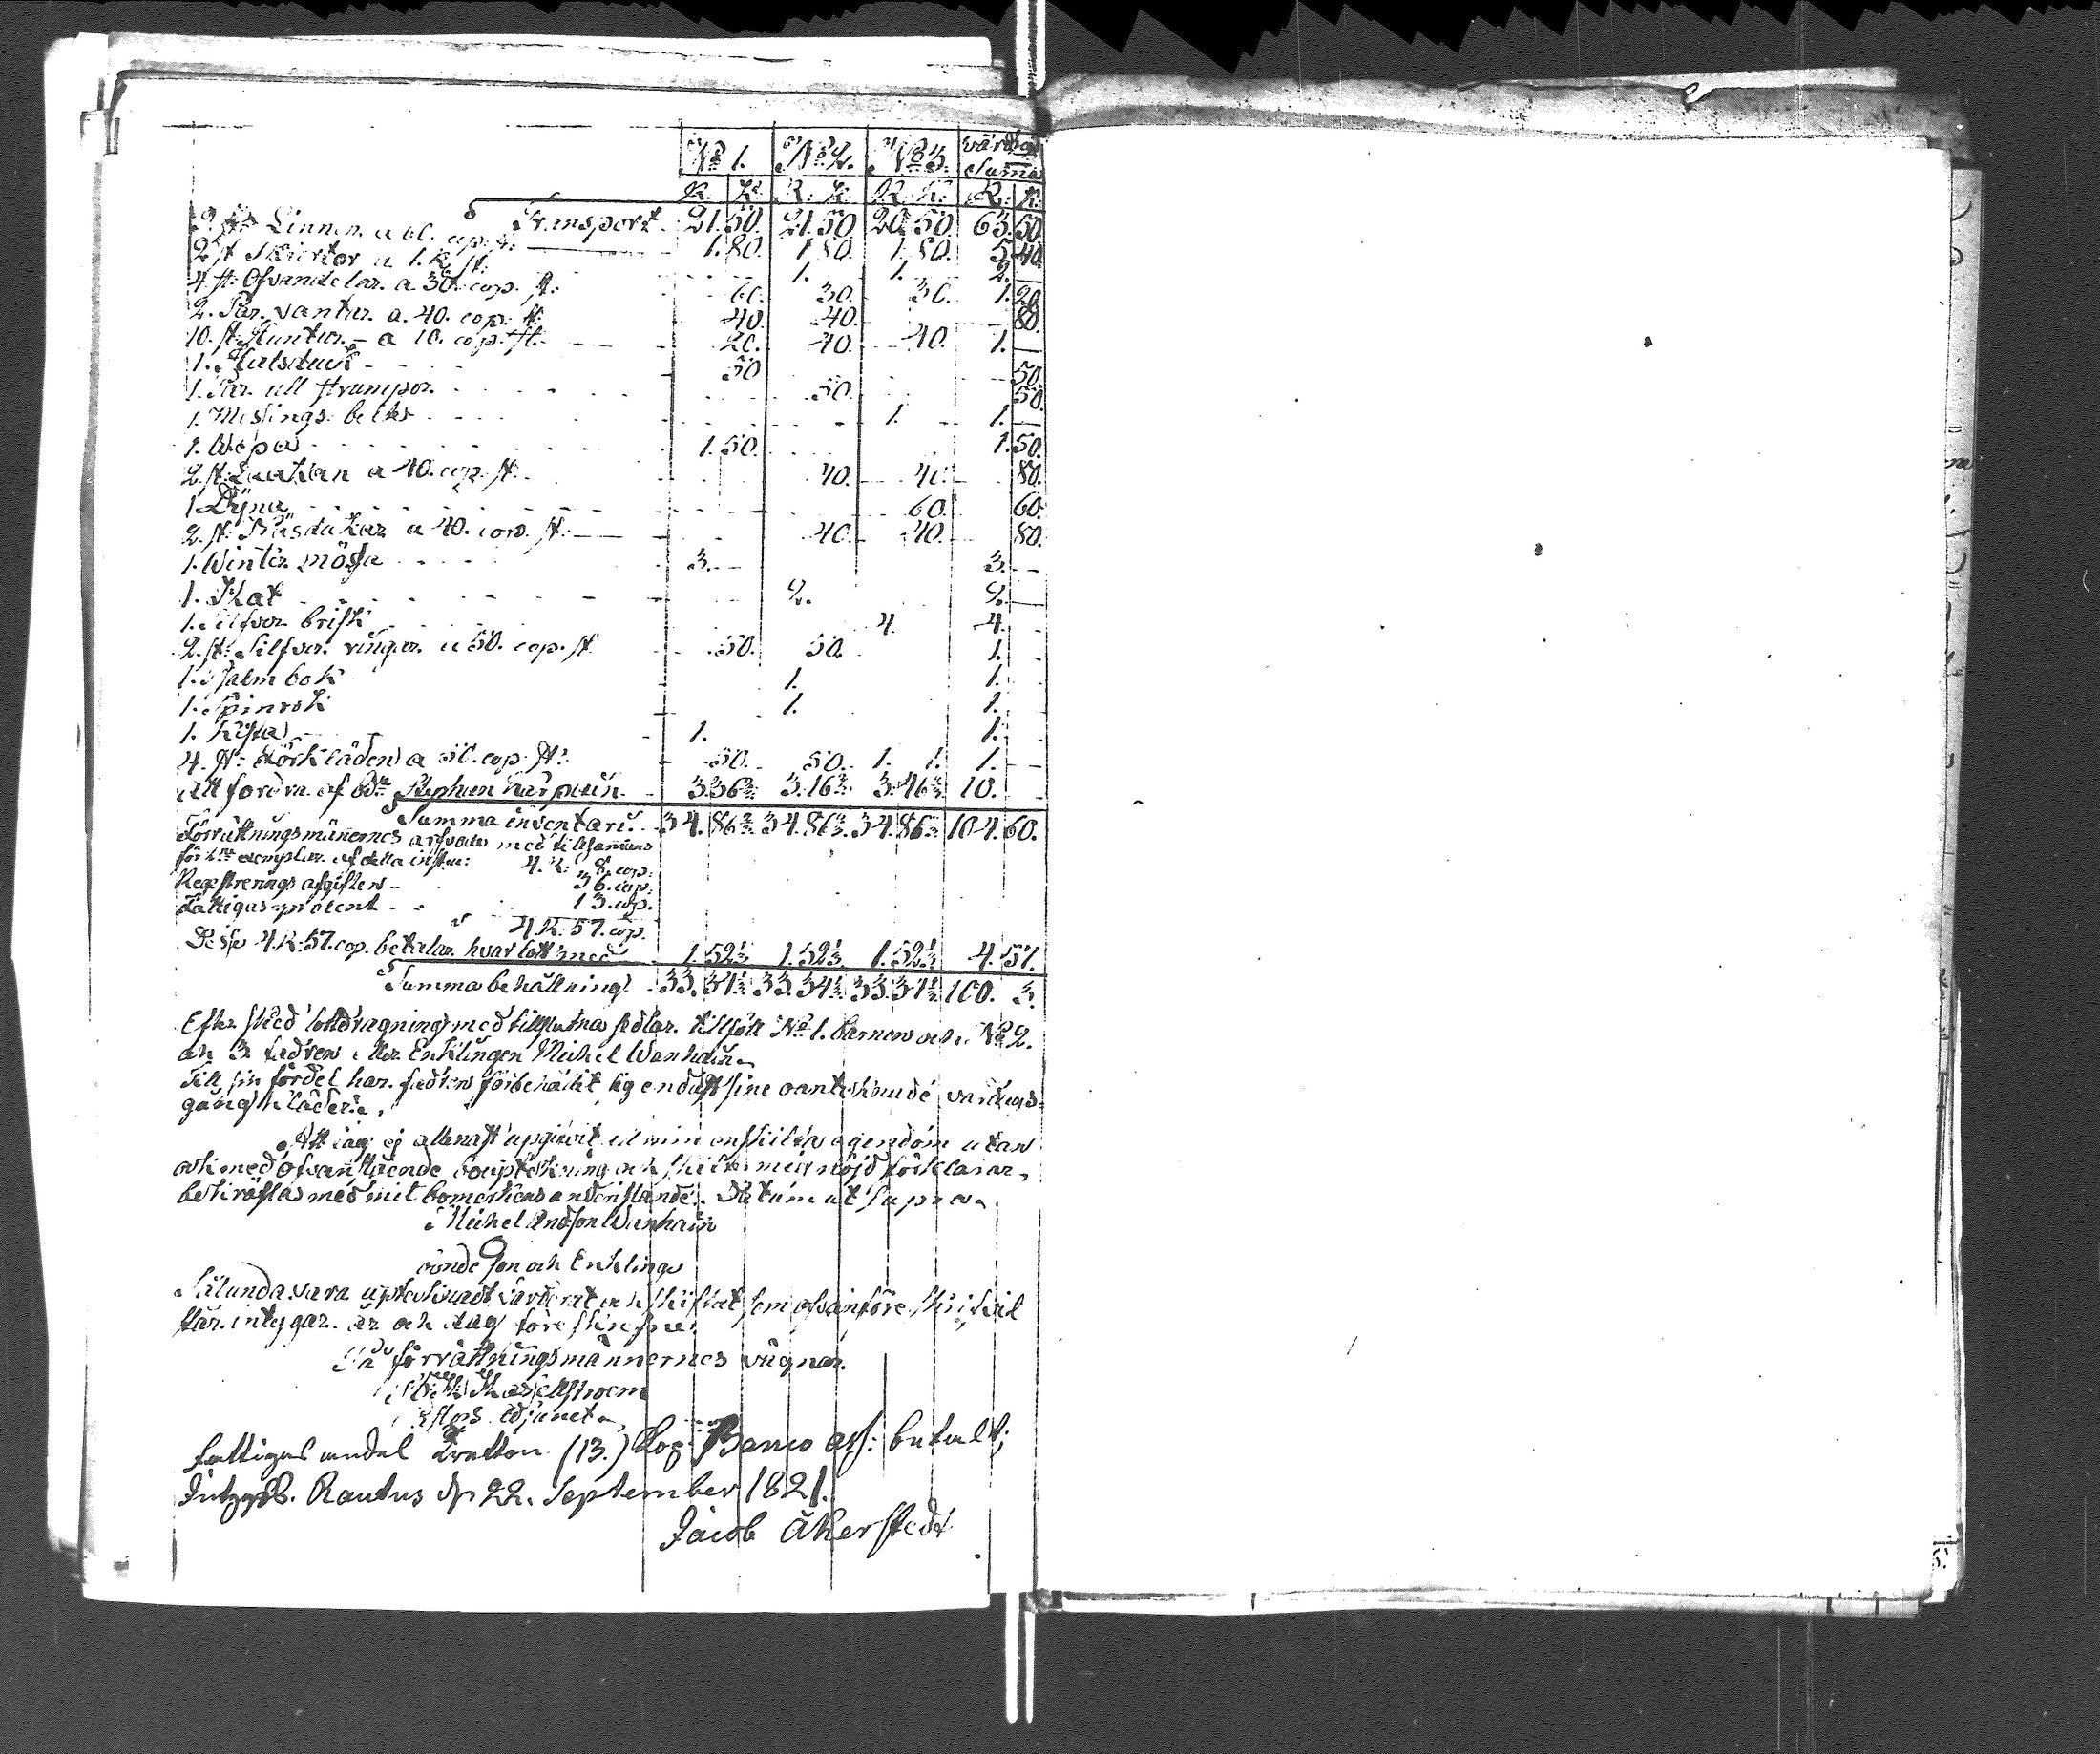 No 1. No 2. No 3. värdes Suma
R. K. R. K. R. K. R. K.
Transport 21.50. 21.50 20.50. 63.50
9 st. Linnen a 60. cop. st. 1.80. 1.80. 1.80. 5.40.
2 st. Skiortor a 1. R. st. 1. 1. 2.
4. st. Ofvandelar a 30. cop. st. 60. 30. 30. 1.20.
2. Par. vantar. a. 40. cop. st. 40. 40. 80.
10. st. Huntur. a 10. cop. st. 20. 40. 40. 1.
1. Halsduk 50 50.
1. Par. ull strumpor. 50. 50.
1. Messings. belte 1. 1.
1. Wepa 1.50. 1.50.
2. st. Laakan a 40. cop. st. 40. 40. 80.
1 Dyna 60. 60.
2. st. a 40. cop. st. 40. 40. 80.
1. Winter mössa 3. 3.
1. Hat 2. 2.
1. Silfver brisk 4. 4.
2. st. Silfver. ringar. a 50. cop. st 50. 50. 1.
1. Psalm bok 1. 1.
1. Spinrok 1. 1.
1. Kista 1. 1.
4. st. Förkläden a 50. cop. st. 50. 50. 1. 1. 1.
Att fordra af Bdn Stephan 3.36⅔ 3.16⅔ 3.46⅔ 10.
Summa inventarii 34.86⅔ 34.86⅔ 34.86⅔ 104.60.
Förrättningsmännernes arfvode med tillsamans
för exemplar. af detta instru: 4. R. 8. cop.
Registrerings afgiften 36. cop.
Fattigas procent 13. cop.
4 R. 57. cop.
Desse 4 R. 57. cop. betalar hvar lott med 1.52⅓ 1.52⅓. 1.52⅓ 4.57.
Summa behållning 33.34⅓ 33.34⅓ 33.34⅓ 100. 3.
Efter skedd lottdragning med tillslutna sedlar. tillföll No 1. barnen och No 2.
och 3. fadren eller Enklingen Michel Wanhain
Till sin fördel har fadren förbehållit sig endast sine oantecknade vardags
gångkläder.
Att jag ej allenast upgivit all min enskilta egendom utan
och med ofvanstående bouptekning och skifte med nöjd förklarar,
bekräftas med mit bomerkes understände. Datum ut supra
Michel Andsson Wanhain
bonde son och Enkling
Sålunda vara uptecknadt värderat och skiftat som ofvanföre skrifvit
står. intygar. år och dag föreskrefne.
På förrättningsmännernes vägnar.
Adjunct.
Fattigas andel Tretton (13.) Kop. Banco ass: betalt;
Rautus d. 22. September 1821.
Jacob Åkerstedt